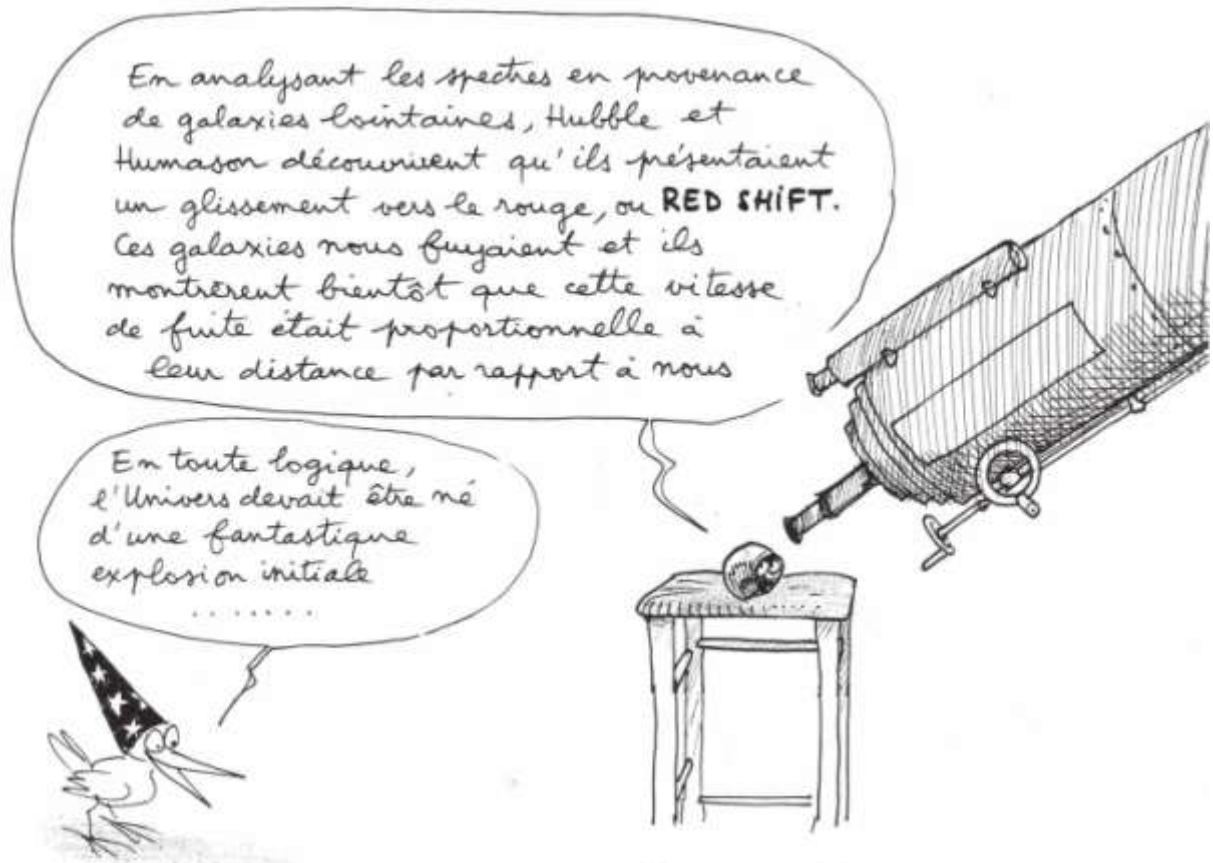 En analysant les spectres en provenance
de galaxies lointaines, Hubble et
Humason découvrirent qu'ils présentaient
un glissement vers le rouge, ou RED SHIFT.
Ces galaxies nous fuyaient et ils
montrèrent bientôt que cette vitesse
de fuite était proportionnelle à
leur distance par rapport à nous
En toute logique,
l'Univers devait être né
d'une fantastique
explosion initiale
.......